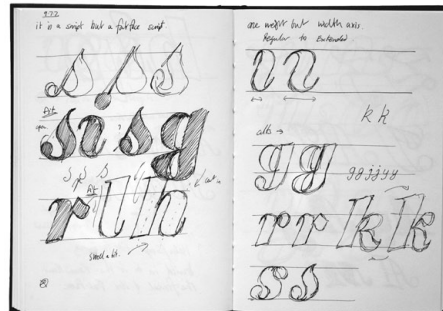 it is a script but a fatface script
s s s
Fat
s n s g
?
s s s
r l h
Small a bit.
one weight but width axis
Regular to Extended
n n
k k
alts →
g g
g g j j y y
r r k k
s s